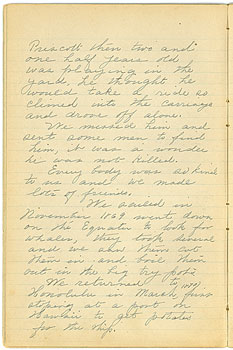 Prescott then two and
one half years old
was playing in the
yard, he thought he
would take a ride so
climed into the carriage
and drove off alone.
We missed him and
sent some men to find
him, it was a wonder
he was not killed.
Every body was as kind
to us and we made
lots of friends.
We sailed in
November, 1859 went down
on the Equator to look for
whales, they took several
and we saw them cut
them in and boil them
out in the big try pots
We returned to
Honolulu in March first
stoping at a port on
Hawaii to get potatoes
for the ship.